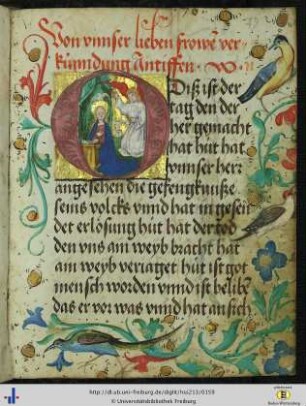 Von vnnser lieben frowē ver
kündung Antiffen
Diß ist der
tag den der
her gemacht
hat hüt hat
vnnser herr
angesehen die gefengknuße
seins volcks vnnd hat in gesen
det erlösung hüt hat der tod
den vns am weyb bracht hat
am weyb veriaget hüt ist got
mensch worden vnnd ist belibē
das er vor was vnnd hat an sich
http://dl.ub.uni-freiburg.de/diglit/hs/0159
© Universitätsbibliothek Freiburg